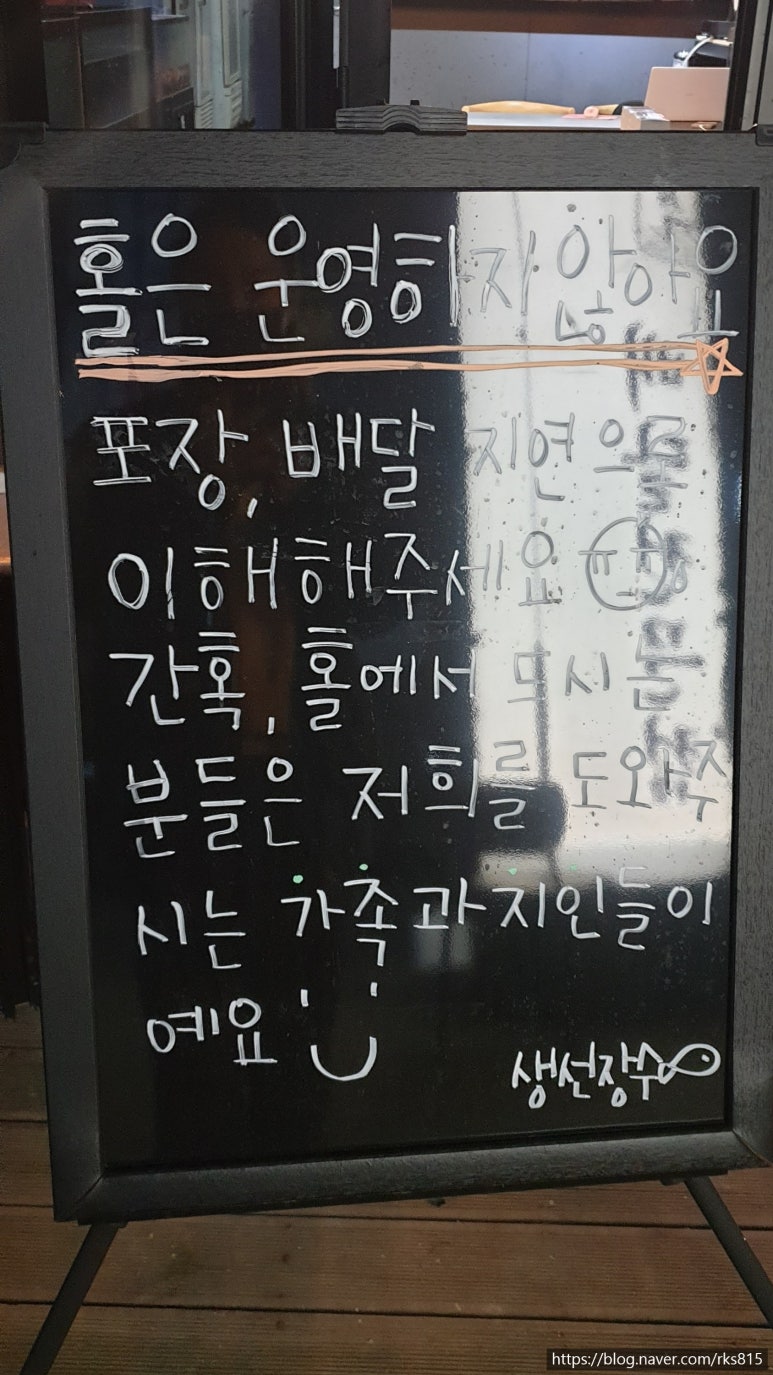 홀은 운영하지 않아요
포장, 배달 지연
이해해주세요 ㅠㅠ
간혹, 홀에서 드시는
분들은 저희를 도와주
시는 가족과 지인들이
예요
생선장수
https://blog.naver.com/rks815